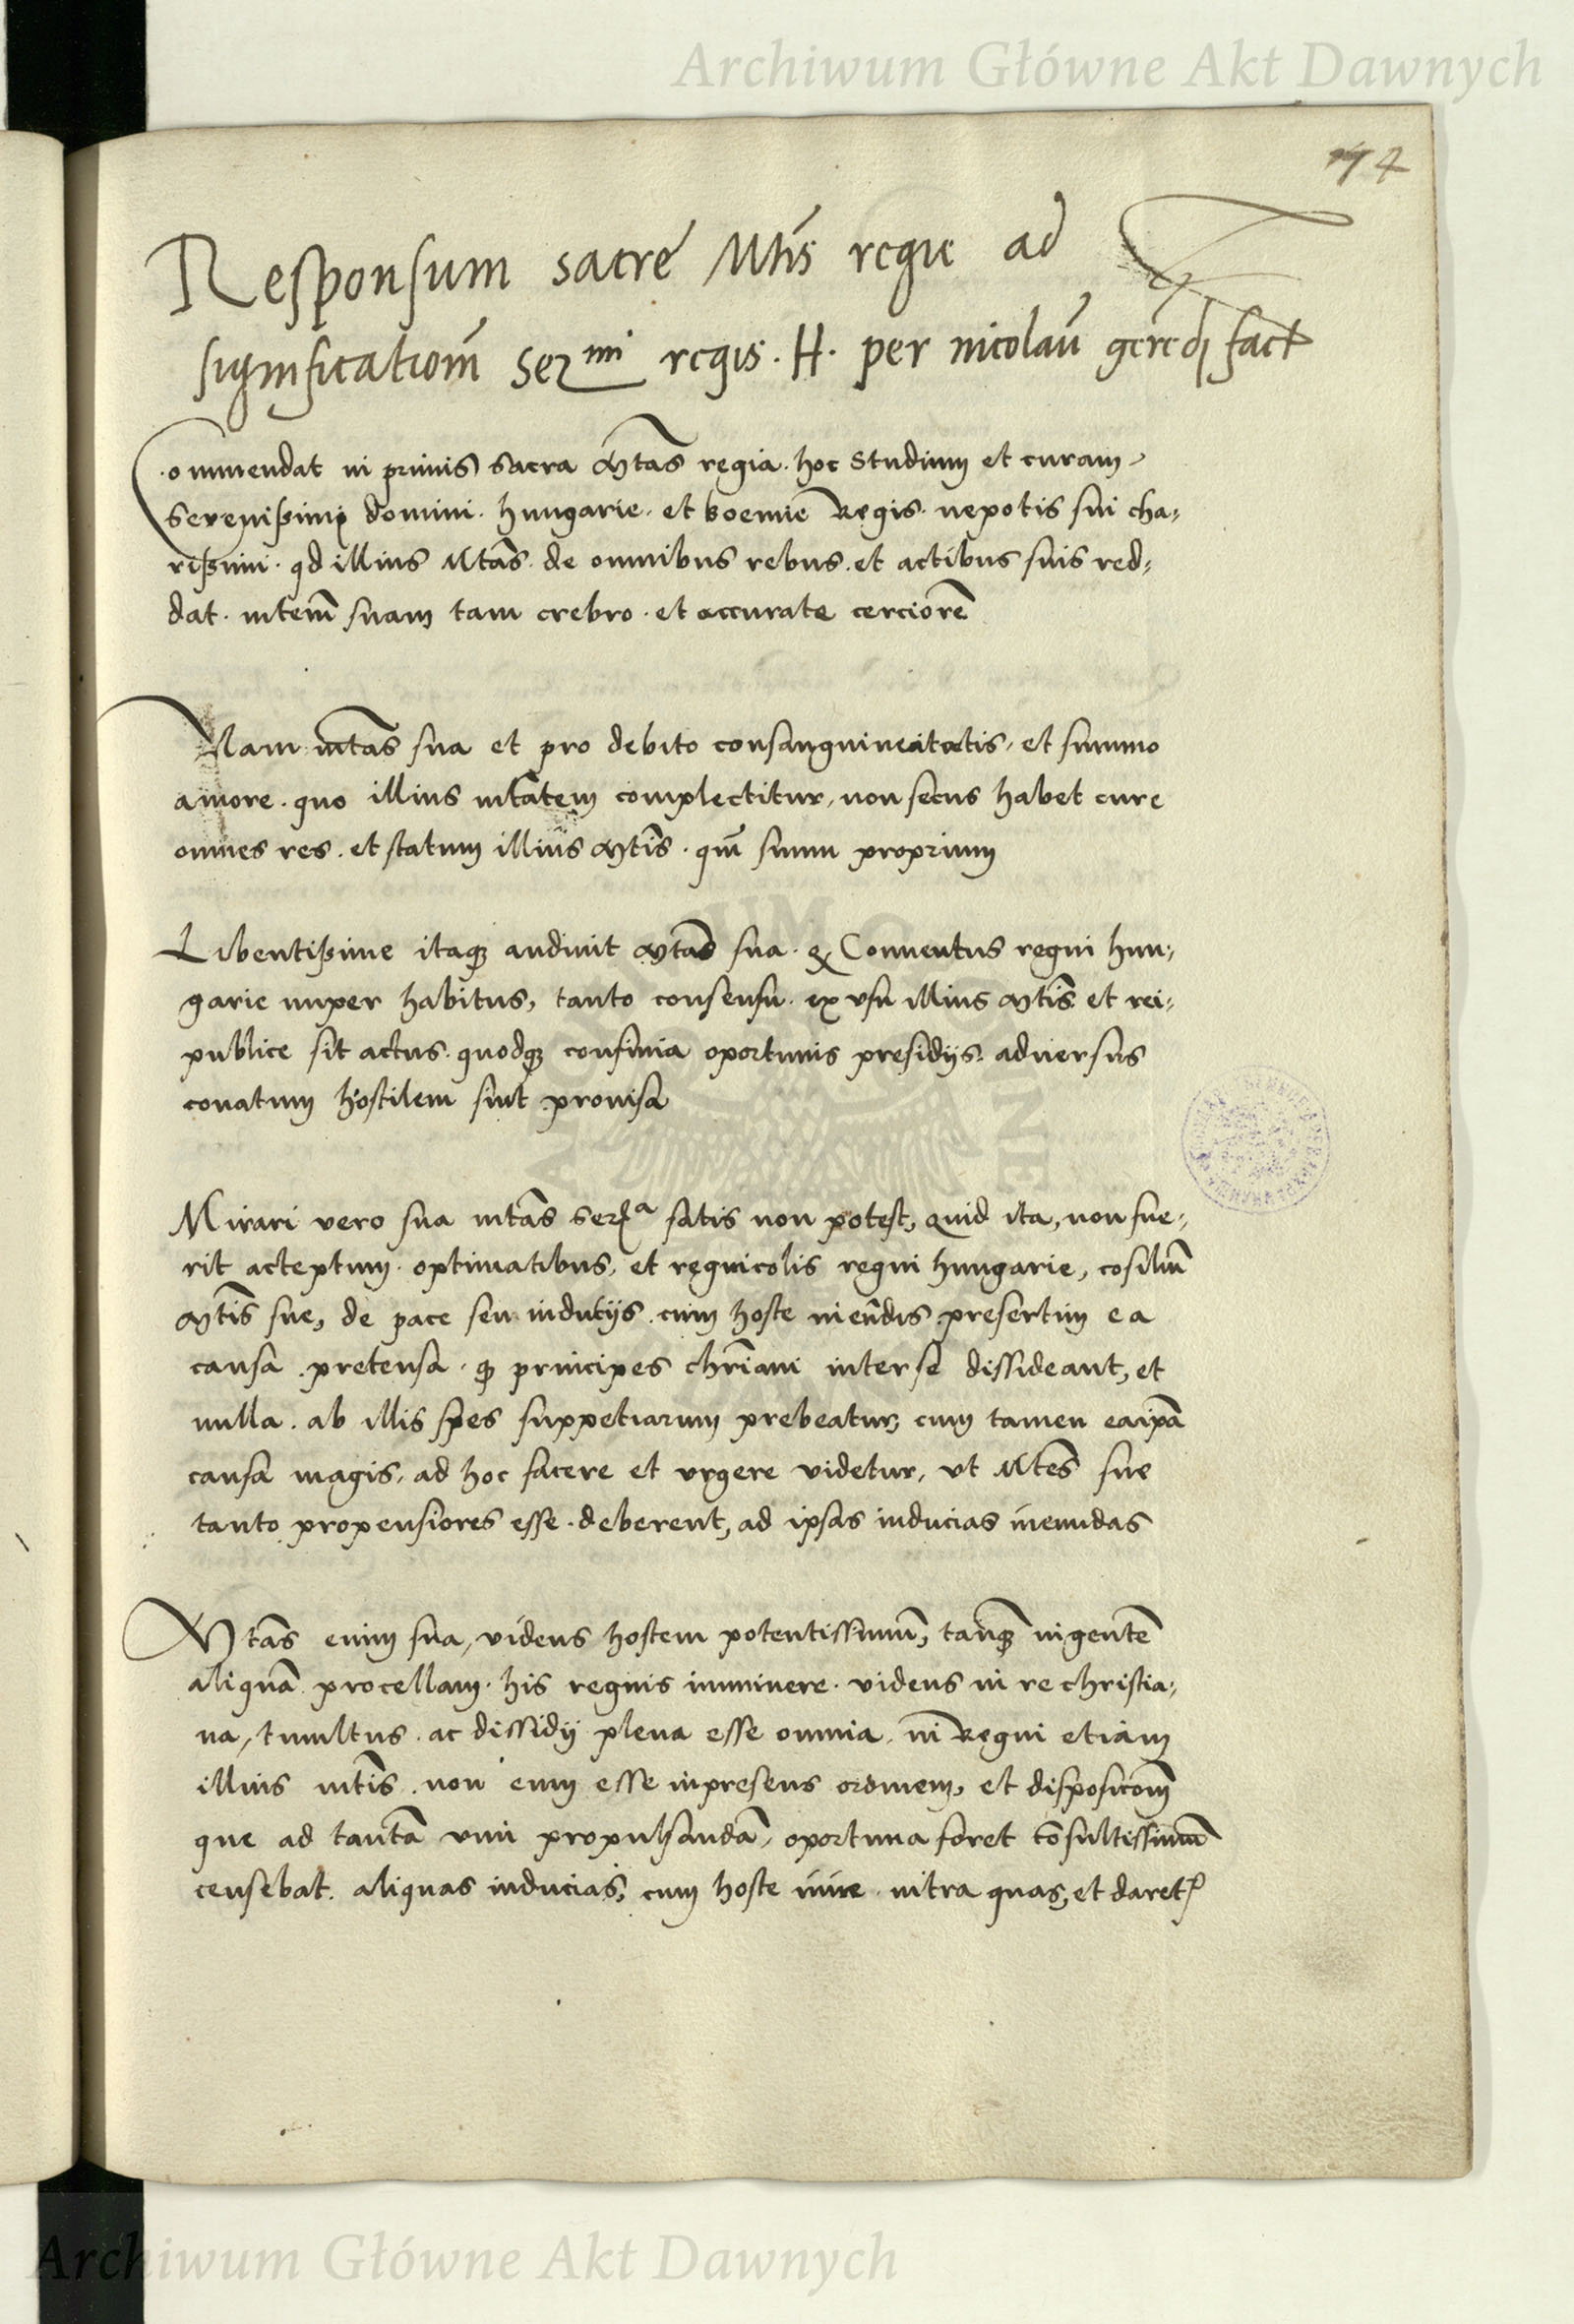 Archiwum Główne Akt Dawnych
Responsum sacre Mtis regie ad
significationẽ Sermi regis . H . per nicolaũ gerẽdi fact
Commendat in primis sacra Mtas regia . hoc studium et curam
serenißimi domini . hungarie . et boemie Regis . nepotis sui cha,
rißimi . qd illius Mtas . de omnibus rebus . et actibus suis red,
dat . mtem suam tam crebro . et accurate cerciorẽ
Nam mtas sua et pro debito consanguineitatis, et summo
amore . quo illius mtatem complectitur, non secus habet cure
omnes res . et statum illius Mtis . qm̃ suum proprium
Libentißime itaqȝ audiuit Mtas sua . qȝ Conuentus regni hun,
garie nuper habitus, tanto consensu . ex vsu illius Mtis et rei,
publice sit actus . quodqȝ confinia oportunis presidijs . aduersus
conatum hostilem sint prouisa
Mirari vero sua mtas serma satis non potest, quid ita, non fue,
rit acteptum . optimatibus, et regnicolis regni hungarie, cõsiliũ
Mtis sue, de pace seu inducijs . cum hoste ineũdis . presertim ea
causa . pretensa . qȝ principes chr̃iani inter se dissideant, et
nulla . ab illis spes suppetiarum prebeatur, cum tamen ea ip̃a
causa magis, ad hoc facere et vrgere videtur, vt Mtes sue
tanto propensiores esse . deberent, ad ipsas inducias ineundas
Mtas enim sua, videns hostem potentissimũ, tanqȝ ingentẽ
aliquã procellam . his regnis imminere . videns in re christia,
na, tumultus . ac dissidij plena esse omnia . in Regni etiam
illius mtis . non eum esse inpresens ordinem, et disposicõem
que ad tantã vim propulsandã, oportuna foret cõsultissimũ
censebat . aliquas inducias, cum hoste inire . intra quas, et daretr
Archiwum Główne Akt Dawnych